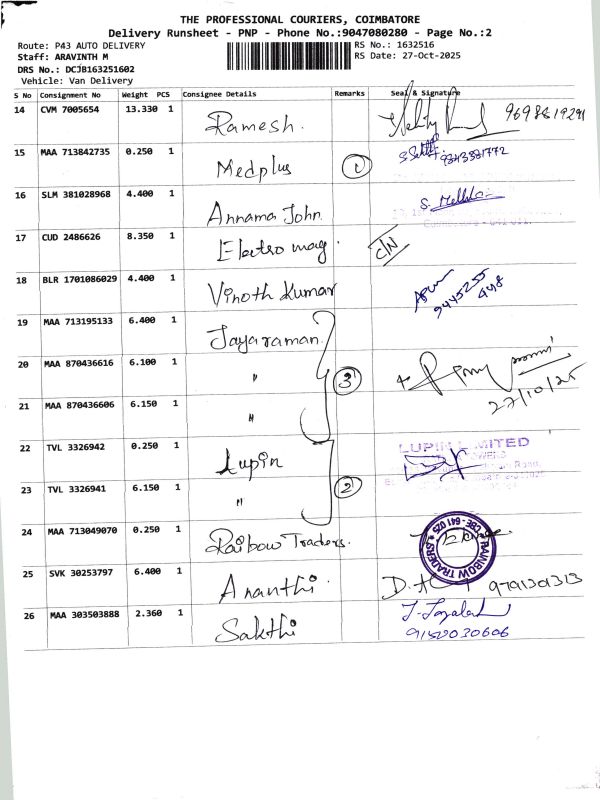 THE PROFESSIONAL COURIERS, COIMBATORE
Delivery Runsheet - PNP - Phone No.:9047080280 - Page No.:2
Route: P43 AUTO DELIVERY RS No.: 1632516
Staff: ARAVINTH M RS Date: 27-Oct-2025
DRS No.: DCJB163251602
Vehicle: Van Delivery
S No Consignment No Weight PCS Consignee Details Remarks Seal & Signature
14 CVM 7005654 13.330 1 Ramesh. 9698819291
15 MAA 713842735 0.250 1 Medplus 1 9343381772
16 SLM 381028968 4.400 1 Annama John
17 CUD 2486626 8.350 1 Electro mag. C/N
18 BLR 1701086029 4.400 1 Vinoth Kumar 9445255
498
19 MAA 713195133 6.400 1 Jayaraman.
20 MAA 870436616 6.100 1 " 3
21 MAA 870436606 6.150 1 " 27/10/25
22 TVL 3326942 0.250 1 Lupin LUPIN LIMITED
23 TVL 3326941 6.150 1 " 2
24 MAA 713049070 0.250 1 Raibow Traders. RAINBOW TRADERS CBE - 641 025
25 SVK 30253797 6.400 1 Ananthi. 9791301313
26 MAA 303503888 2.360 1 Sakthi
9152030606